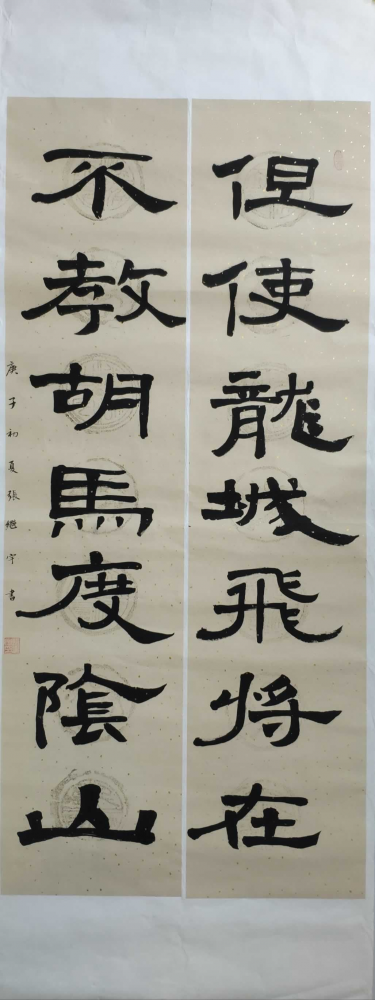 但使龍城飛将在
不教胡馬度陰山
庚子初夏張継宇書